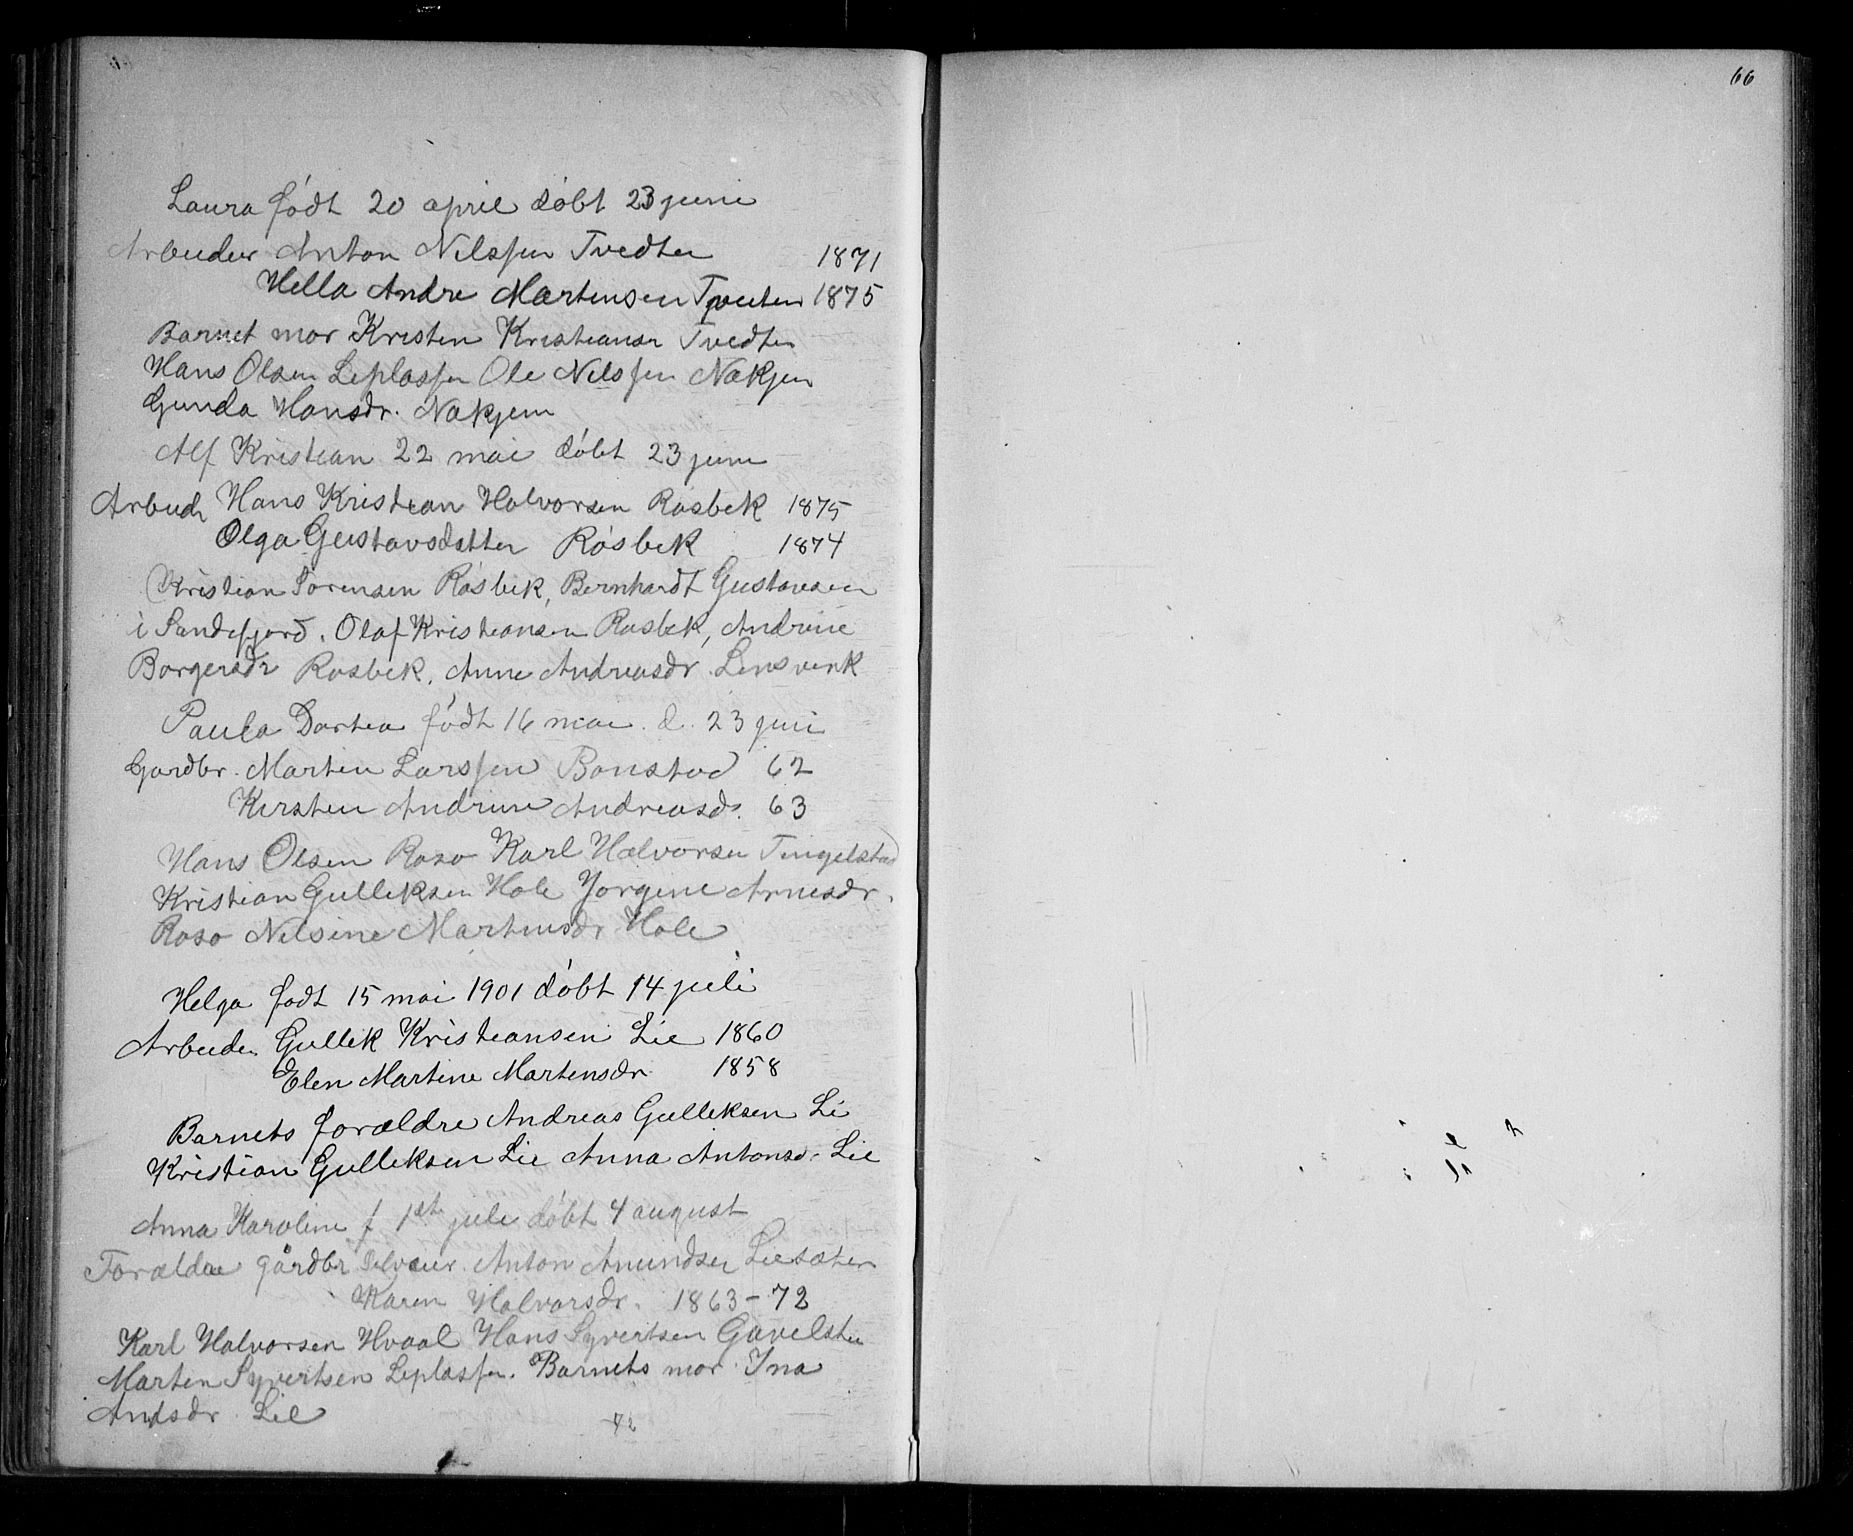 66
Laura født 20 april døbt 23 juni
Arbeider Anton Nilssen Tvedten 1871
Hella Andre Martensen Tveiten 1875
Barnet mor Kristen Kristianse Tvedten
Hans Olsen Leplassen Ole Nilssen Nakjem
Gunda Hansdr. Nakjem
Alf Kristian 22 mai døbt 23 juni
Arbeid. Hans Kristian Halvorsen Rosbek 1875
Olga Gustavsdatter Røsbek 1874
Kristian Sørensen Røsbek, Bernhardt Gustavsen
i Sandefjord. Olaf Kristiansen Rosbek, Andrine
Borgersdr Rosbek. Anne Andreasdr.
Paula Dortea født 16 mai d. 23 juni
Gardbr. Martin Larssen Bonstad 62
Kirsten Andrine Andreasd. 63
Hans Olsen Raso Karl Halvorsen Tingelstad
Kristian Gulleksen Hole Jørgine Arnesdr.
Raso Nilsine Martinsdr Hole
Helga født 15 mai 1901 døbt 14 juli
Arbeider Gullik Kristiansen Lie 1860
Elen Martine Martensdr. 1858
Barnets forældre Andreas Gulleksen Li
Kristian Gulleksen Lie Anna Antonsd. Lie
Anna Karoline f 1st juli døbt 4 august
Forældre gårdbr Selveier. Anton Amundsen Liesæter
Karen Halvorsdr. 1863-72
Karl Halvorsen Hvaal Hans Syvertsen Gavelstu
Marten Syvertsen Leplassen. Barnets mor. Ina
Andsdr. Lie
72